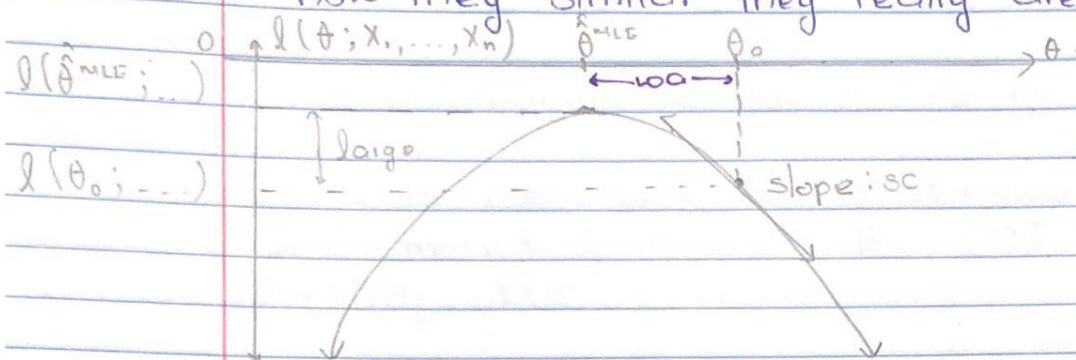 How they similar they really are
0 l(θ; X₁, ..., Xₙ) θ̂ᴹᴸᴱ θ₀ θ
l(θ̂ᴹᴸᴱ; ..)
large
l(θ₀; ...) slope: sc